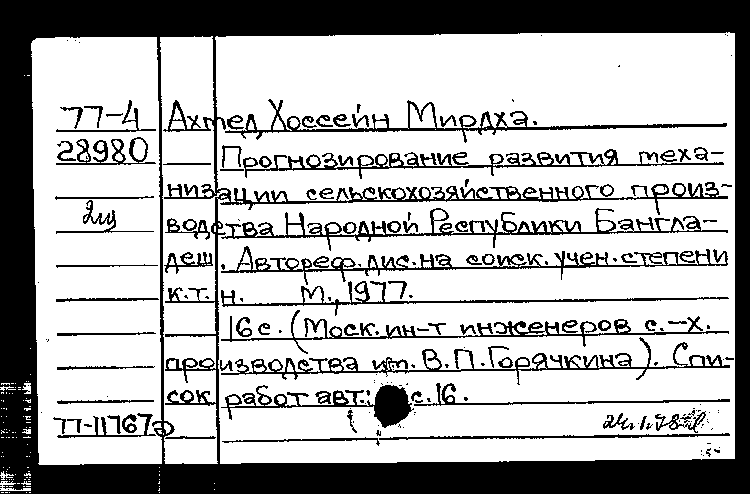 77-4 Ахмед, Хоссейн Мирдха.
28980 Прогнозирование развития меха-
низации сельскохозяйственного произ-
2щ водства Народной Республики Бангла-
деш. Автореф. дис. на соиск. учен. степени
к.т.н. М., 1977.
16 с. (Моск. ин-т инженеров с.-х.
производства им. В.П. Горячкина). Спи-
сок работ авт.: с. 16.
77-11767а 24.1.78